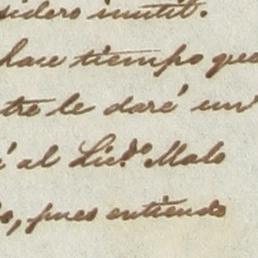 sidero inutil.
hace tiempo que
tre le daré un
é al Licdo Malo
o, pues entiendo